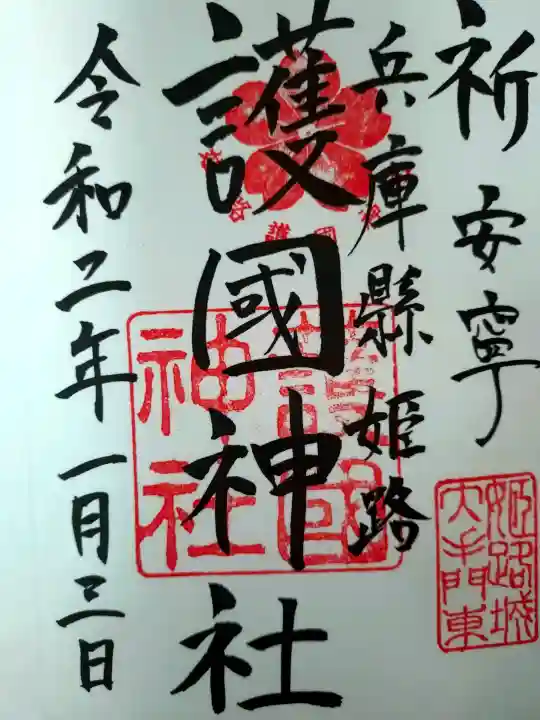 祈 安寧
兵庫縣 姫路
護國神社
令和二年一月三日
護國
神社
姫路城
大手門東